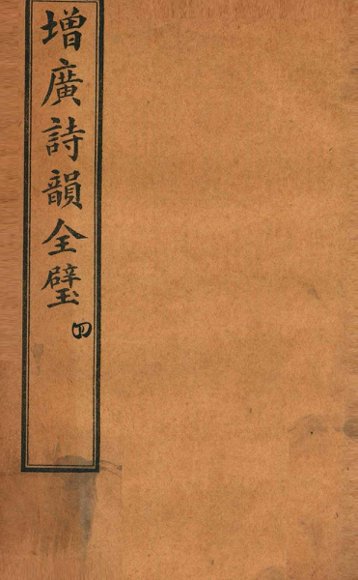 增廣詩韻全璧
四